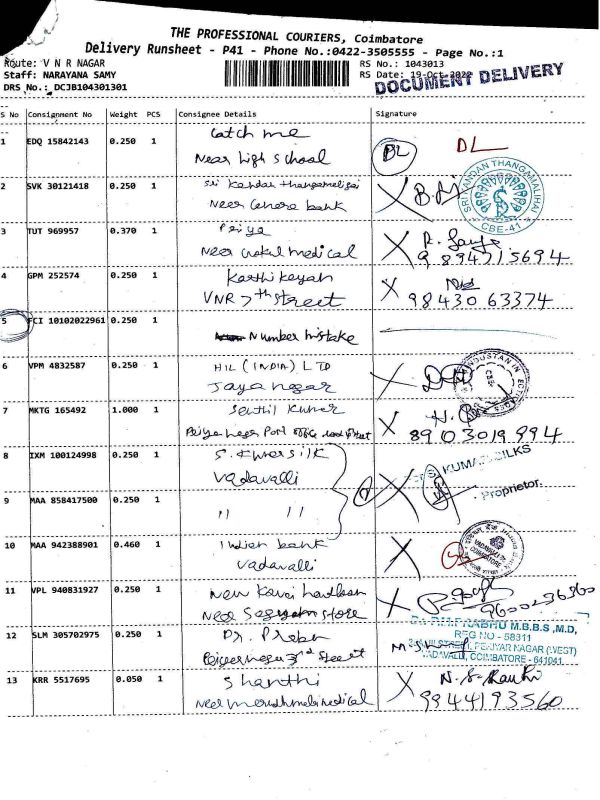 THE PROFESSIONAL COURIERS, Coimbatore
Delivery Runsheet - P41 - Phone No.:0422-3505555 - Page No.:1
Route: V N R NAGAR
RS No.: 1043013
Staff: NARAYANA SAMY
RS Date: 19-Oct-2022
DOCUMENT DELIVERY
DRS No.: DCJB104301301
S No Consignment No Weight PCS Consignee Details Signature
Catch me
1 EDQ 15842143 0.250 1
Near high school
DL DL
2 SVK 30121418 0.250 1
Sri Kandan Thangamaligai
Near Canara bank
SRI KANDAN THANGAMALIHAI
CBE-41
3 TUT 969957 0.370 1
Priya
Near Gokul medical
9894715694
4 GPM 252574 0.250 1
Karthikeyan
VNR 7th Street
98430 63374
5 FCI 10102022961 0.250 1
Number mistake
6 VPM 4832587 0.250 1
HIL (INDIA) LTD
Jaya nagar
7 MKTG 165492 1.000 1
Senthil Kumar
8903019994
8 IXM 100124998 0.250 1
S. Kumar silk
Vadavalli
S. KUMAR SILKS
Proprietor
9 MAA 858417500 0.250 1
" "
10 MAA 942388901 0.460 1
Indian bank
Vadavalli
11 VPL 940831927 0.250 1
New Kovai
Near store
9600236360
12 SLM 305702975 0.250 1
Dr. Prabu
3rd Street
PRABHU M.B.B.S.,M.D,
REG NO - 58311
STREET, PERIYAR NAGAR (WEST)
VADAVALLI, COIMBATORE - 641041
13 KRR 5517695 0.050 1
Shanthi
Near medical
9944193560